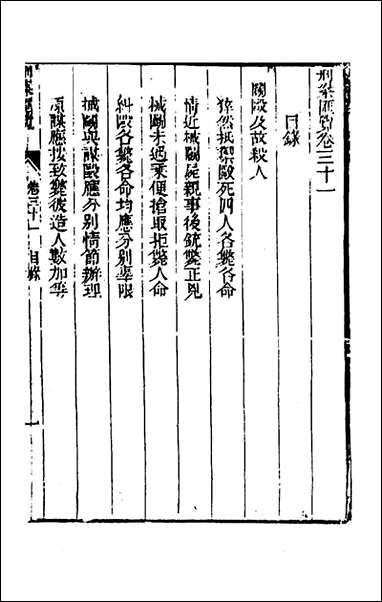 刑案匯覽卷三十一
目錄
鬭毆及故殺人
猝然抵禦毆死四人各斃各命
情近械鬭屍親事後銃斃正兇
械鬭未過乘便搶取拒斃人命
糾毆各斃各命均應分別辜限
械鬭與謀毆應分別情節辦理
原謀應按致斃彼造人數加等
刑案匯覽 卷三十一 目錄